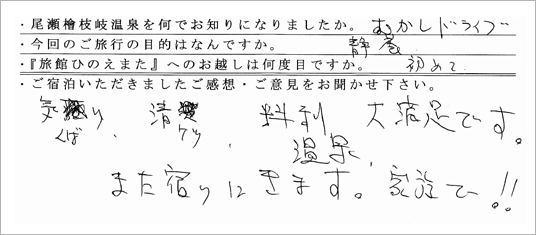 ・尾瀬檜枝岐温泉を何でお知りになりましたか。 むかしドライブ
・今回のご旅行の目的はなんですか。 静養
・『旅館ひのえまた』へのお越しは何度目ですか。 初めて
・ご宿泊いただきましたご感想・ご意見をお聞かせ下さい。
気くばり、清けつ、料利 大満足です。
温泉、
また宿りにきます。家族で!!